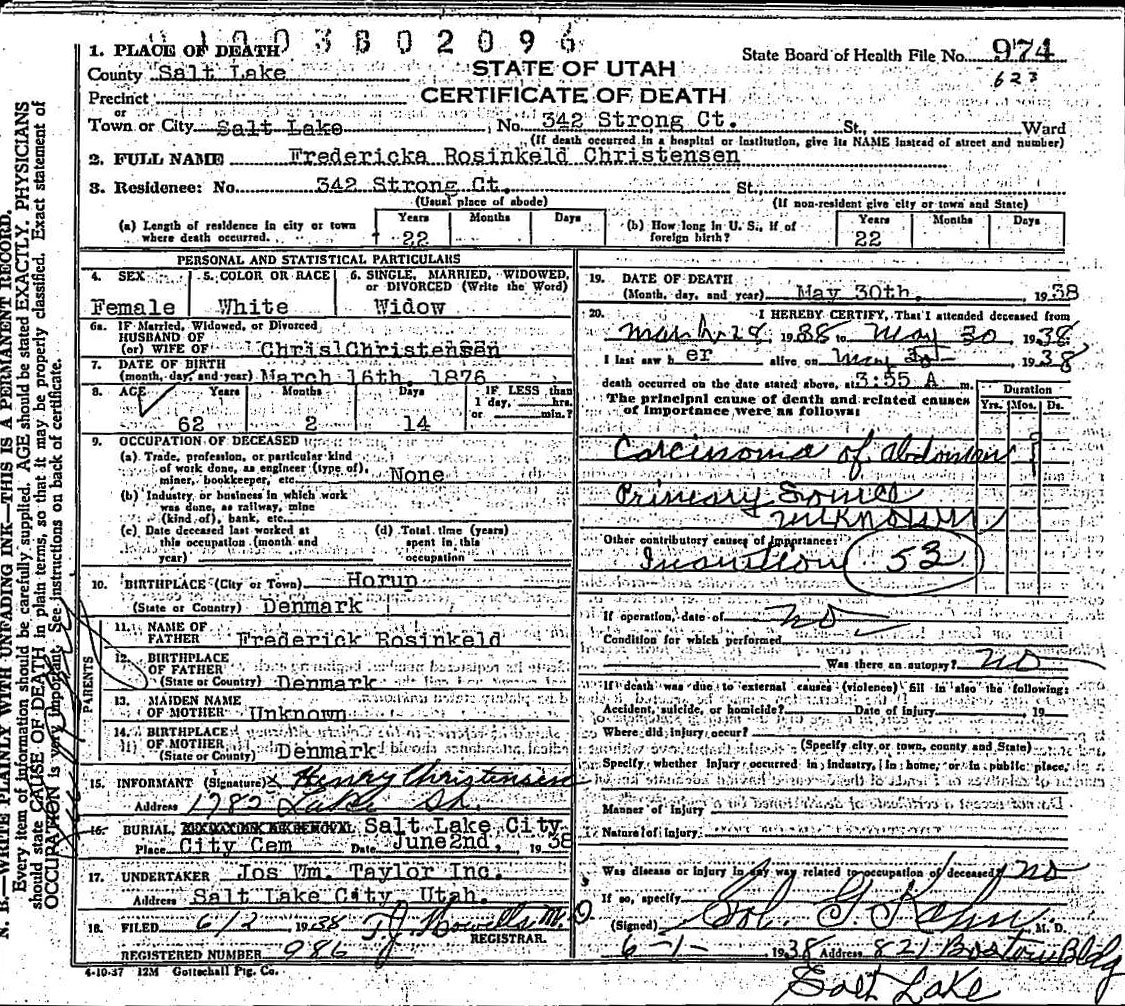 N. B.—WRITE PLAINLY WITH UNFADING INK—THIS IS A PERMANENT RECORD.
Every item of information should be carefully supplied. AGE should be stated EXACTLY. PHYSICIANS
should state CAUSE OF DEATH in plain terms, so that it may be properly classified. Exact statement of
OCCUPATION is very important. See instructions on back of certificate.
3 8 0 2 0 9 6
1. PLACE OF DEATH
County Salt Lake
Precinct
or
Town or City Salt Lake, No. 342 Strong Ct. St., Ward
(If death occurred in a hospital or institution, give its NAME instead of street and number)
STATE OF UTAH
CERTIFICATE OF DEATH
State Board of Health File No. 974
623
2. FULL NAME Fredericka Rosinkeld Christensen
3. Residence: No. 342 Strong Ct. St.,
(Usual place of abode)
(If non-resident give city or town and State)
(a) Length of residence in city or town where death occurred. Years 22 Months Days
(b) How long in U. S., if of foreign birth? Years 22 Months Days
PERSONAL AND STATISTICAL PARTICULARS
4. SEX Female
5. COLOR OR RACE White
6. SINGLE, MARRIED, WIDOWED, or DIVORCED (Write the Word) Widow
6a. IF Married, Widowed, or Divorced
HUSBAND OF
(or) WIFE OF Chris Christensen
7. DATE OF BIRTH
(month, day, and year) March 16th, 1876
8. AGE Years 62 Months 2 Days 14 IF LESS than 1 day, hrs. or min.?
9. OCCUPATION OF DECEASED
(a) Trade, profession, or particular kind
of work done, as engineer (type of),
miner, bookkeeper, etc. None
(b) Industry, or business in which work
was done, as railway, mine
(kind of), bank, etc.
(c) Date deceased last worked at
this occupation (month and
year)
(d) Total time (years)
spent in this
occupation
10. BIRTHPLACE (City or Town) Horup
(State or Country) Denmark
PARENTS
11. NAME OF
FATHER Frederick Rosinkeld
12. BIRTHPLACE
OF FATHER
(State or Country) Denmark
13. MAIDEN NAME
OF MOTHER Unknown
14. BIRTHPLACE
OF MOTHER
(State or Country) Denmark
15. INFORMANT (Signature) Henry Christensen
Address 1782 Lake St.
16. BURIAL, Salt Lake City
Place City Cem Date June 2nd, 1938
17. UNDERTAKER Jos Wm. Taylor Inc.
Address Salt Lake City, Utah.
18. FILED 6/2 1938 T. J. Howells M. D.
REGISTRAR.
REGISTERED NUMBER 986
4-10-37 12M Gottschall Ptg. Co.
19. DATE OF DEATH
(Month, day, and year) May 30th, 1938
20. I HEREBY CERTIFY, That I attended deceased from
March 28 1938 to May 30, 1938
I last saw her alive on May 1938
death occurred on the date stated above, at 3:55 A m.
The principal cause of death and related causes
of importance were as follows:
Duration
Yrs. Mos. Ds.
Carcinoma of abdomen
Primary Source
unknown
Other contributory causes of importance:
Inanition 53
If operation, date of no
Condition for which performed
Was there an autopsy? no
If death was due to external causes (violence) fill in also the following:
Accident, suicide, or homicide? Date of injury 19
Where did injury occur?
(Specify city or town, county and State)
Specify whether injury occurred in industry, in home, or in public place,
Manner of injury
Nature of injury
Was disease or injury in any way related to occupation of deceased? no
If so, specify
(Signed) Sol. G. Kahn M. D.
6-1- 1938 Address 821 Boston Bldg
Salt Lake